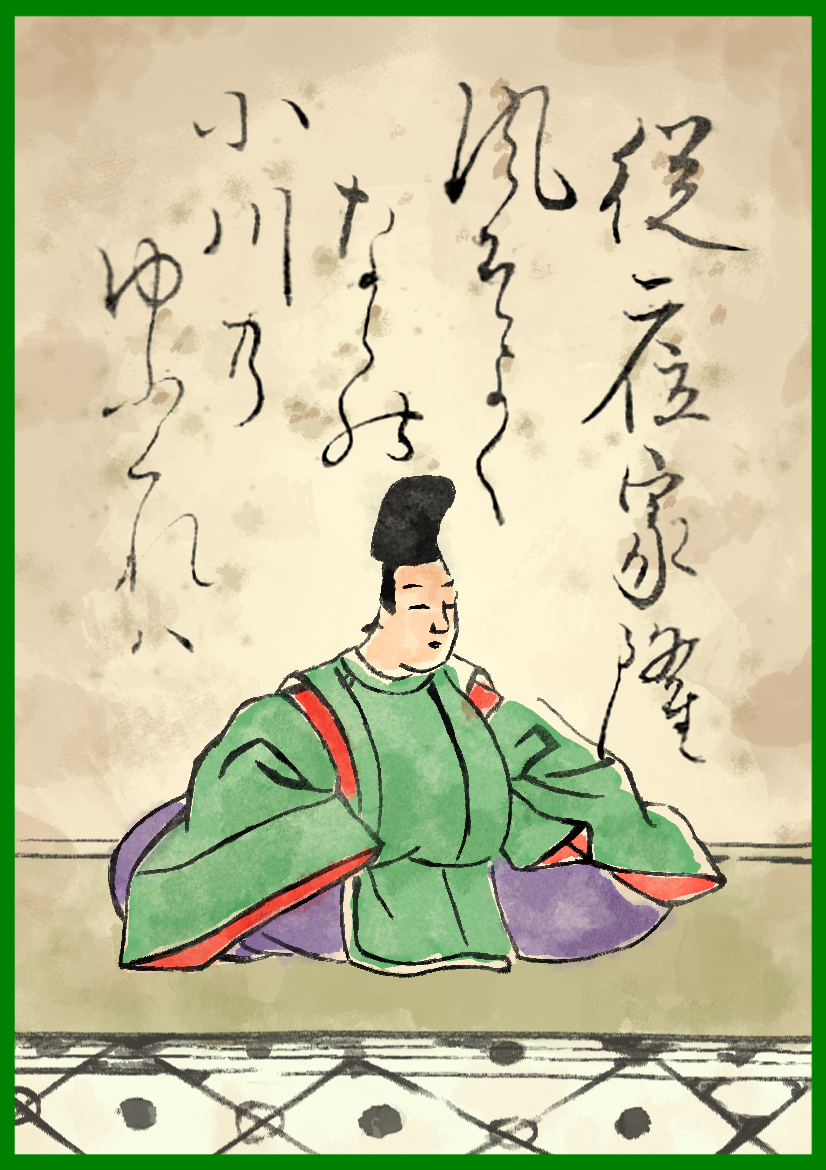 従二位家隆
風そよく
ならの
小川乃
ゆふくれハ